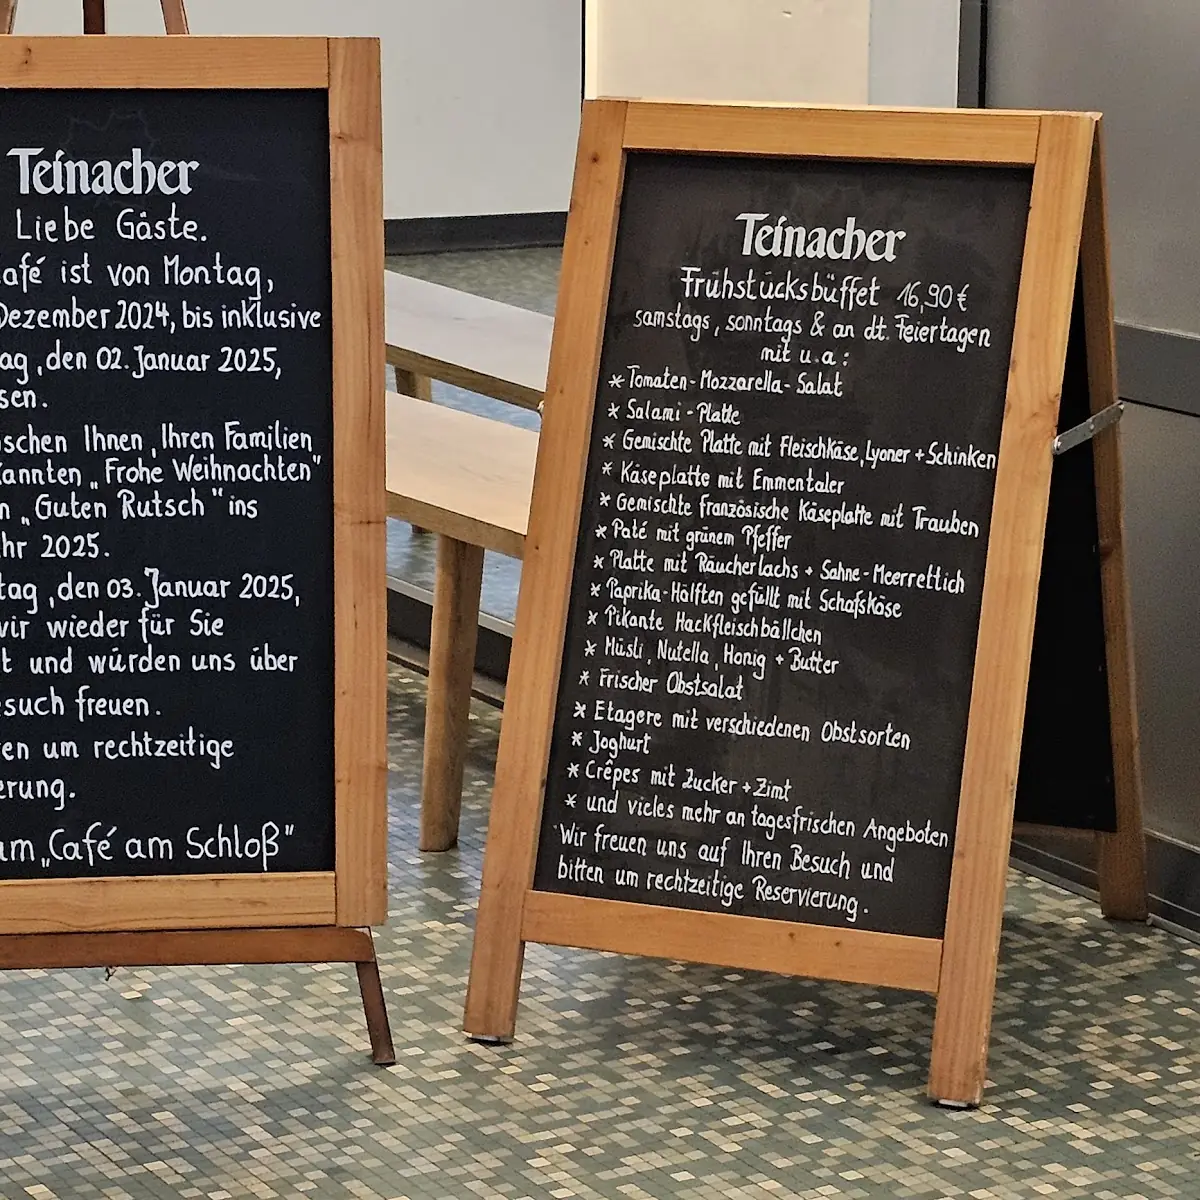 Teinacher
Liebe Gäste.
afé ist von Montag,
Dezember 2024, bis inklusive
ag, den 02. Januar 2025,
sen.
schen Ihnen, Ihren Familien
annten „Frohe Weihnachten"
n „Guten Rutsch" ins
hr 2025.
tag, den 03. Januar 2025,
wir wieder für Sie
t und würden uns über
such freuen.
en um rechtzeitige
erung.
um „Café am Schloß"
Teinacher
Frühstücksbüffet 16,90 €
samstags, sonntags & an dt. Feiertagen
mit u.a:
* Tomaten-Mozzarella-Salat
* Salami-Platte
* Gemischte Platte mit Fleischkäse, Lyoner + Schinken
* Käseplatte mit Emmentaler
* Gemischte Französische Käseplatte mit Trauben
* Paté mit grünem Pfeffer
* Platte mit Räucherlachs + Sahne-Meerrettich
* Paprika-Hälften gefüllt mit Schafskäse
* Pikante Hackfleischbällchen
* Müsli, Nutella, Honig + Butter
* Frischer Obstsalat
* Etagere mit verschiedenen Obstsorten
* Joghurt
* Crêpes mit Zucker + Zimt
* und vieles mehr an tagesfrischen Angeboten
Wir freuen uns auf Ihren Besuch und
bitten um rechtzeitige Reservierung.